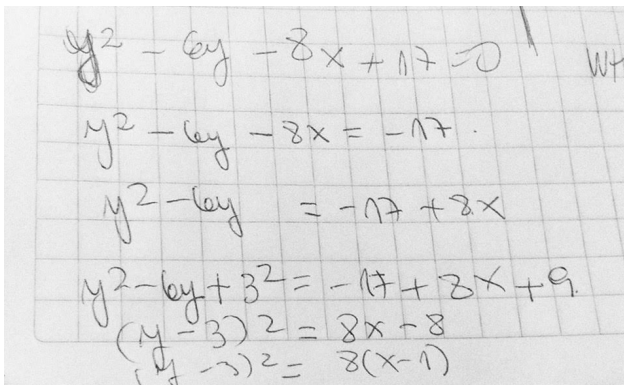 y² - 6y - 8x + 17 = 0
y² - 6y - 8x = -17.
y² - 6y = -17 + 8x
y² - 6y + 3² = -17 + 8x + 9
(y - 3)² = 8x - 8
(y - 3)² = 8(x - 1)